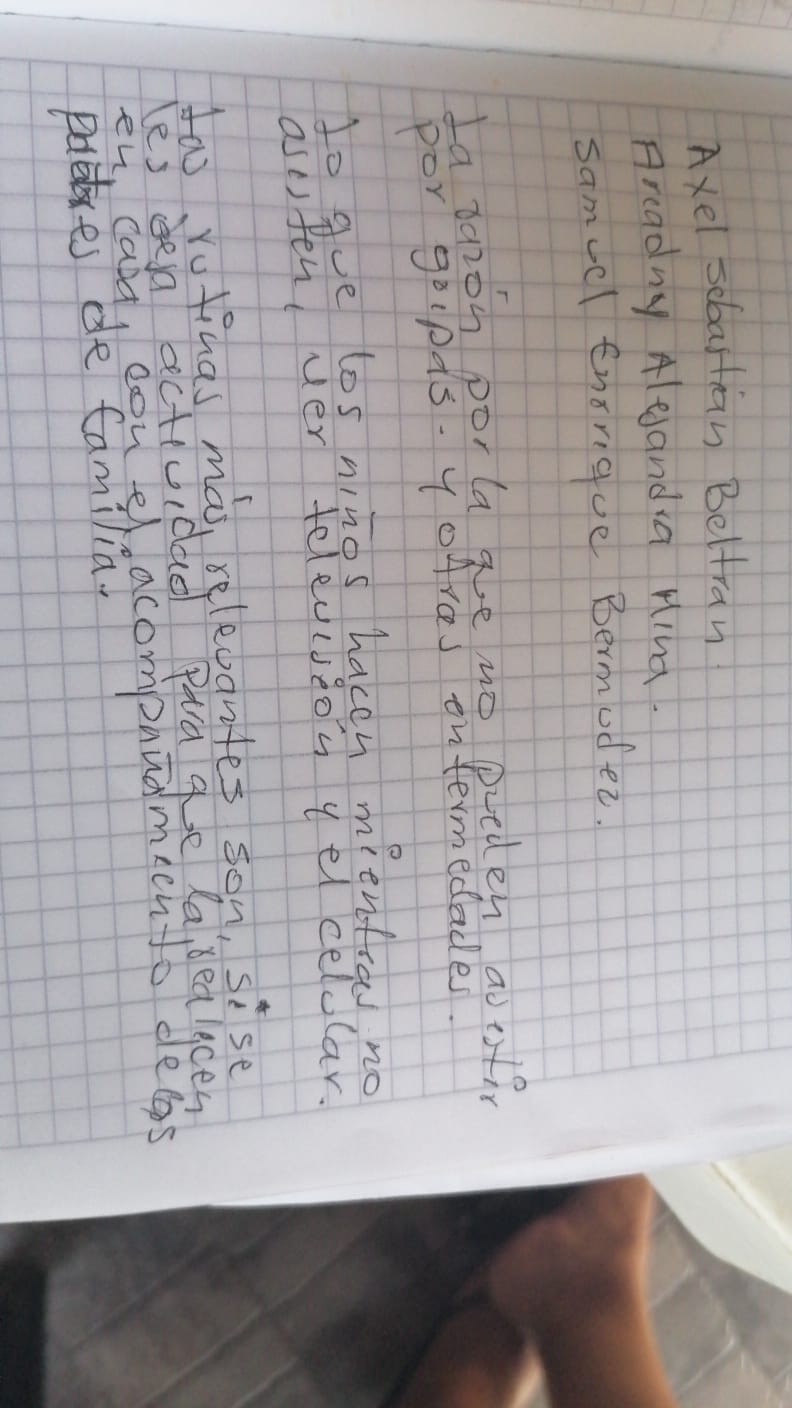 Axel Sebastián Beltran.
Ariadny Alejandra Mina.
Samuel Enrrique Bermudez.
La razón por la que no pueden asistir
por gripas. y otras enfermedades.
Lo que los niños hacen mientras no
asisten, ver televisión y el celular.
Las rutinas más relevantes son, si se
les deja actividad para que la realicen
en casa, con el acompañamiento de los
padres de familia.